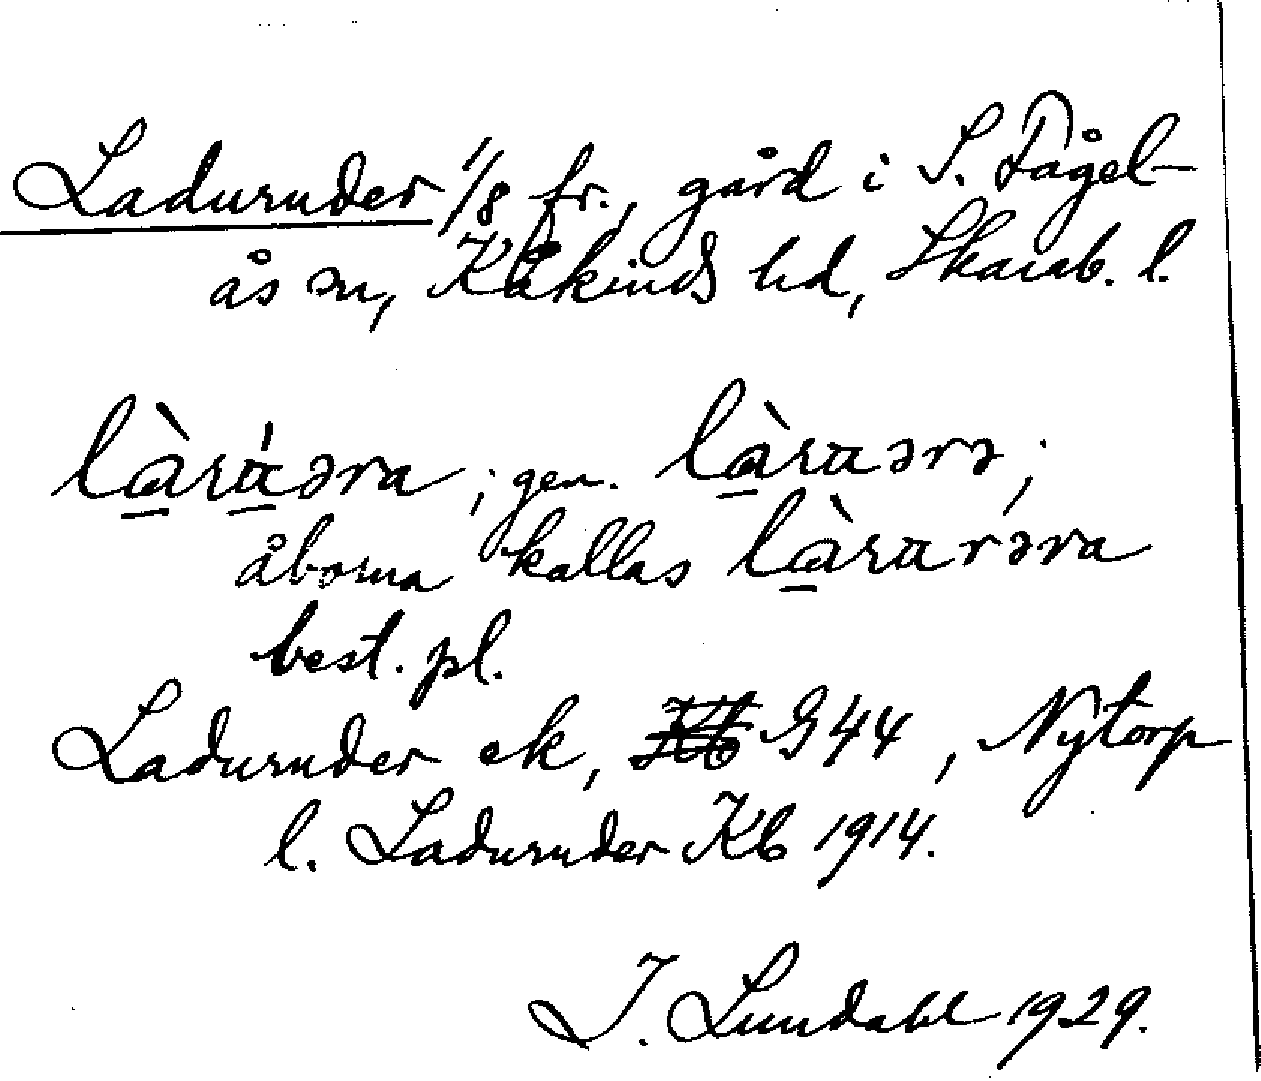 Laduruder 1/8 fr., gård i S. Fågel-
ås sn, Kåkinds hd, Skarab. l.
là̱rá̱əra ; gen. là̱raərə ;
åborna kallas là̱rarəra
best. pl.
Laduruder ek, G 44, Nytorp
l. Laduruder Kb 1914.
I. Lundahl 1929.